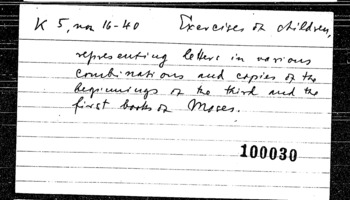 K 5, nos 16-40 Exercises of children,
representing letters in various
combinations and copies of the
beginnings of the third and the
first books of Moses.
100030